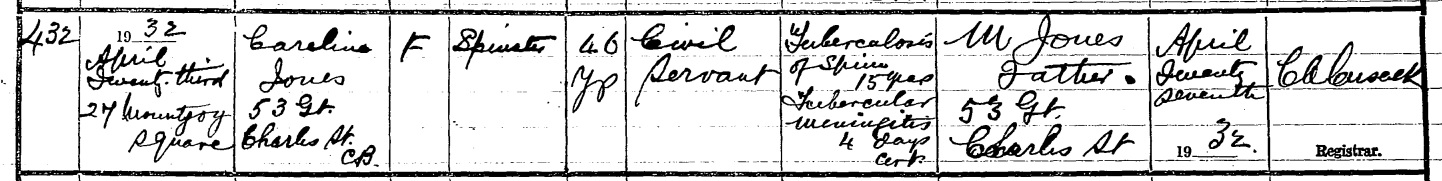 432
1932
April
Twenty-third
27 Mountjoy
Square
Caroline
Jones
53 Gt.
Charles St.
C.B.
F
Spinster
46
yrs
Civil
Servant
Tuberculosis
of Spine
15 years
Tubercular
Meningitis
4 days
Cert.
M Jones
Father.
53 Gt.
Charles St
April
Twenty
Seventh
1932.
Registrar.